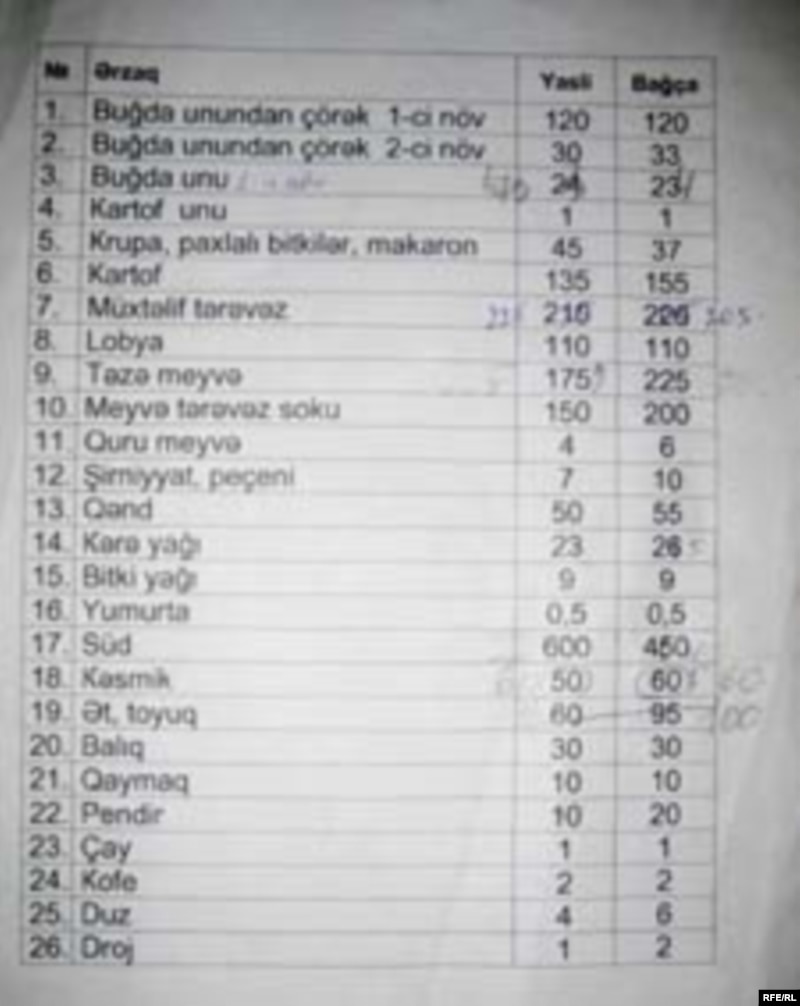 № Ərzaq Yasli Bağça
1. Buğda unundan çörək 1-ci növ 120 120
2. Buğda unundan çörək 2-ci növ 30 33
3. Buğda unu 23
4. Kartof unu 1 1
5. Krupa, paxlalı bitkilər, makaron 45 37
6. Kartof 135 155
7. Müxtəlif tərəvəz 216 226 205
8. Lobya 110 110
9. Təzə meyvə 175 225
10. Meyvə tərəvəz soku 150 200
11. Quru meyvə 4 6
12. Şirniyyat, peçeni 7 10
13. Qənd 50 55
14. Kərə yağı 23 26
15. Bitki yağı 9 9
16. Yumurta 0,5 0,5
17. Süd 600 450
18. Kəsmik 50 60
19. Ət, toyuq 60 95
20. Balıq 30 30
21. Qaymaq 10 10
22. Pendir 10 20
23. Çay 1 1
24. Kofe 2 2
25. Duz 4 6
26. Droj 1 2
RFE/RL